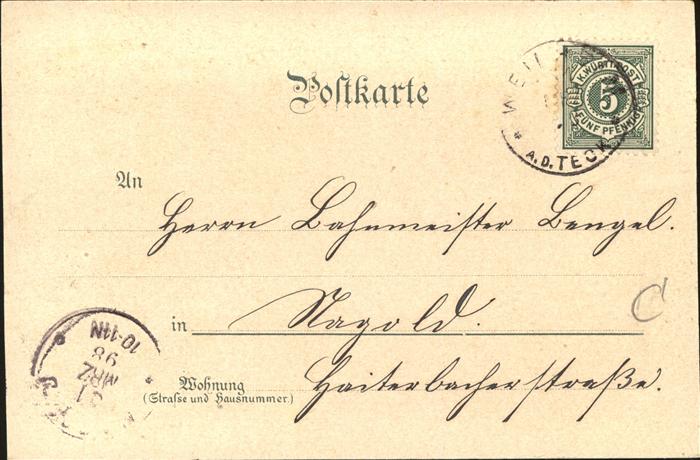 Postkarte
K. WÜRTT. POST
5
FÜNF PFENNIG
A.D. TECK
An
Herrn Bahnmeister Bengel.
in Nagold.
Wohnung Haiterbacherstraße.
(Straße und Hausnummer.)
MRZ
98
10-11N
C